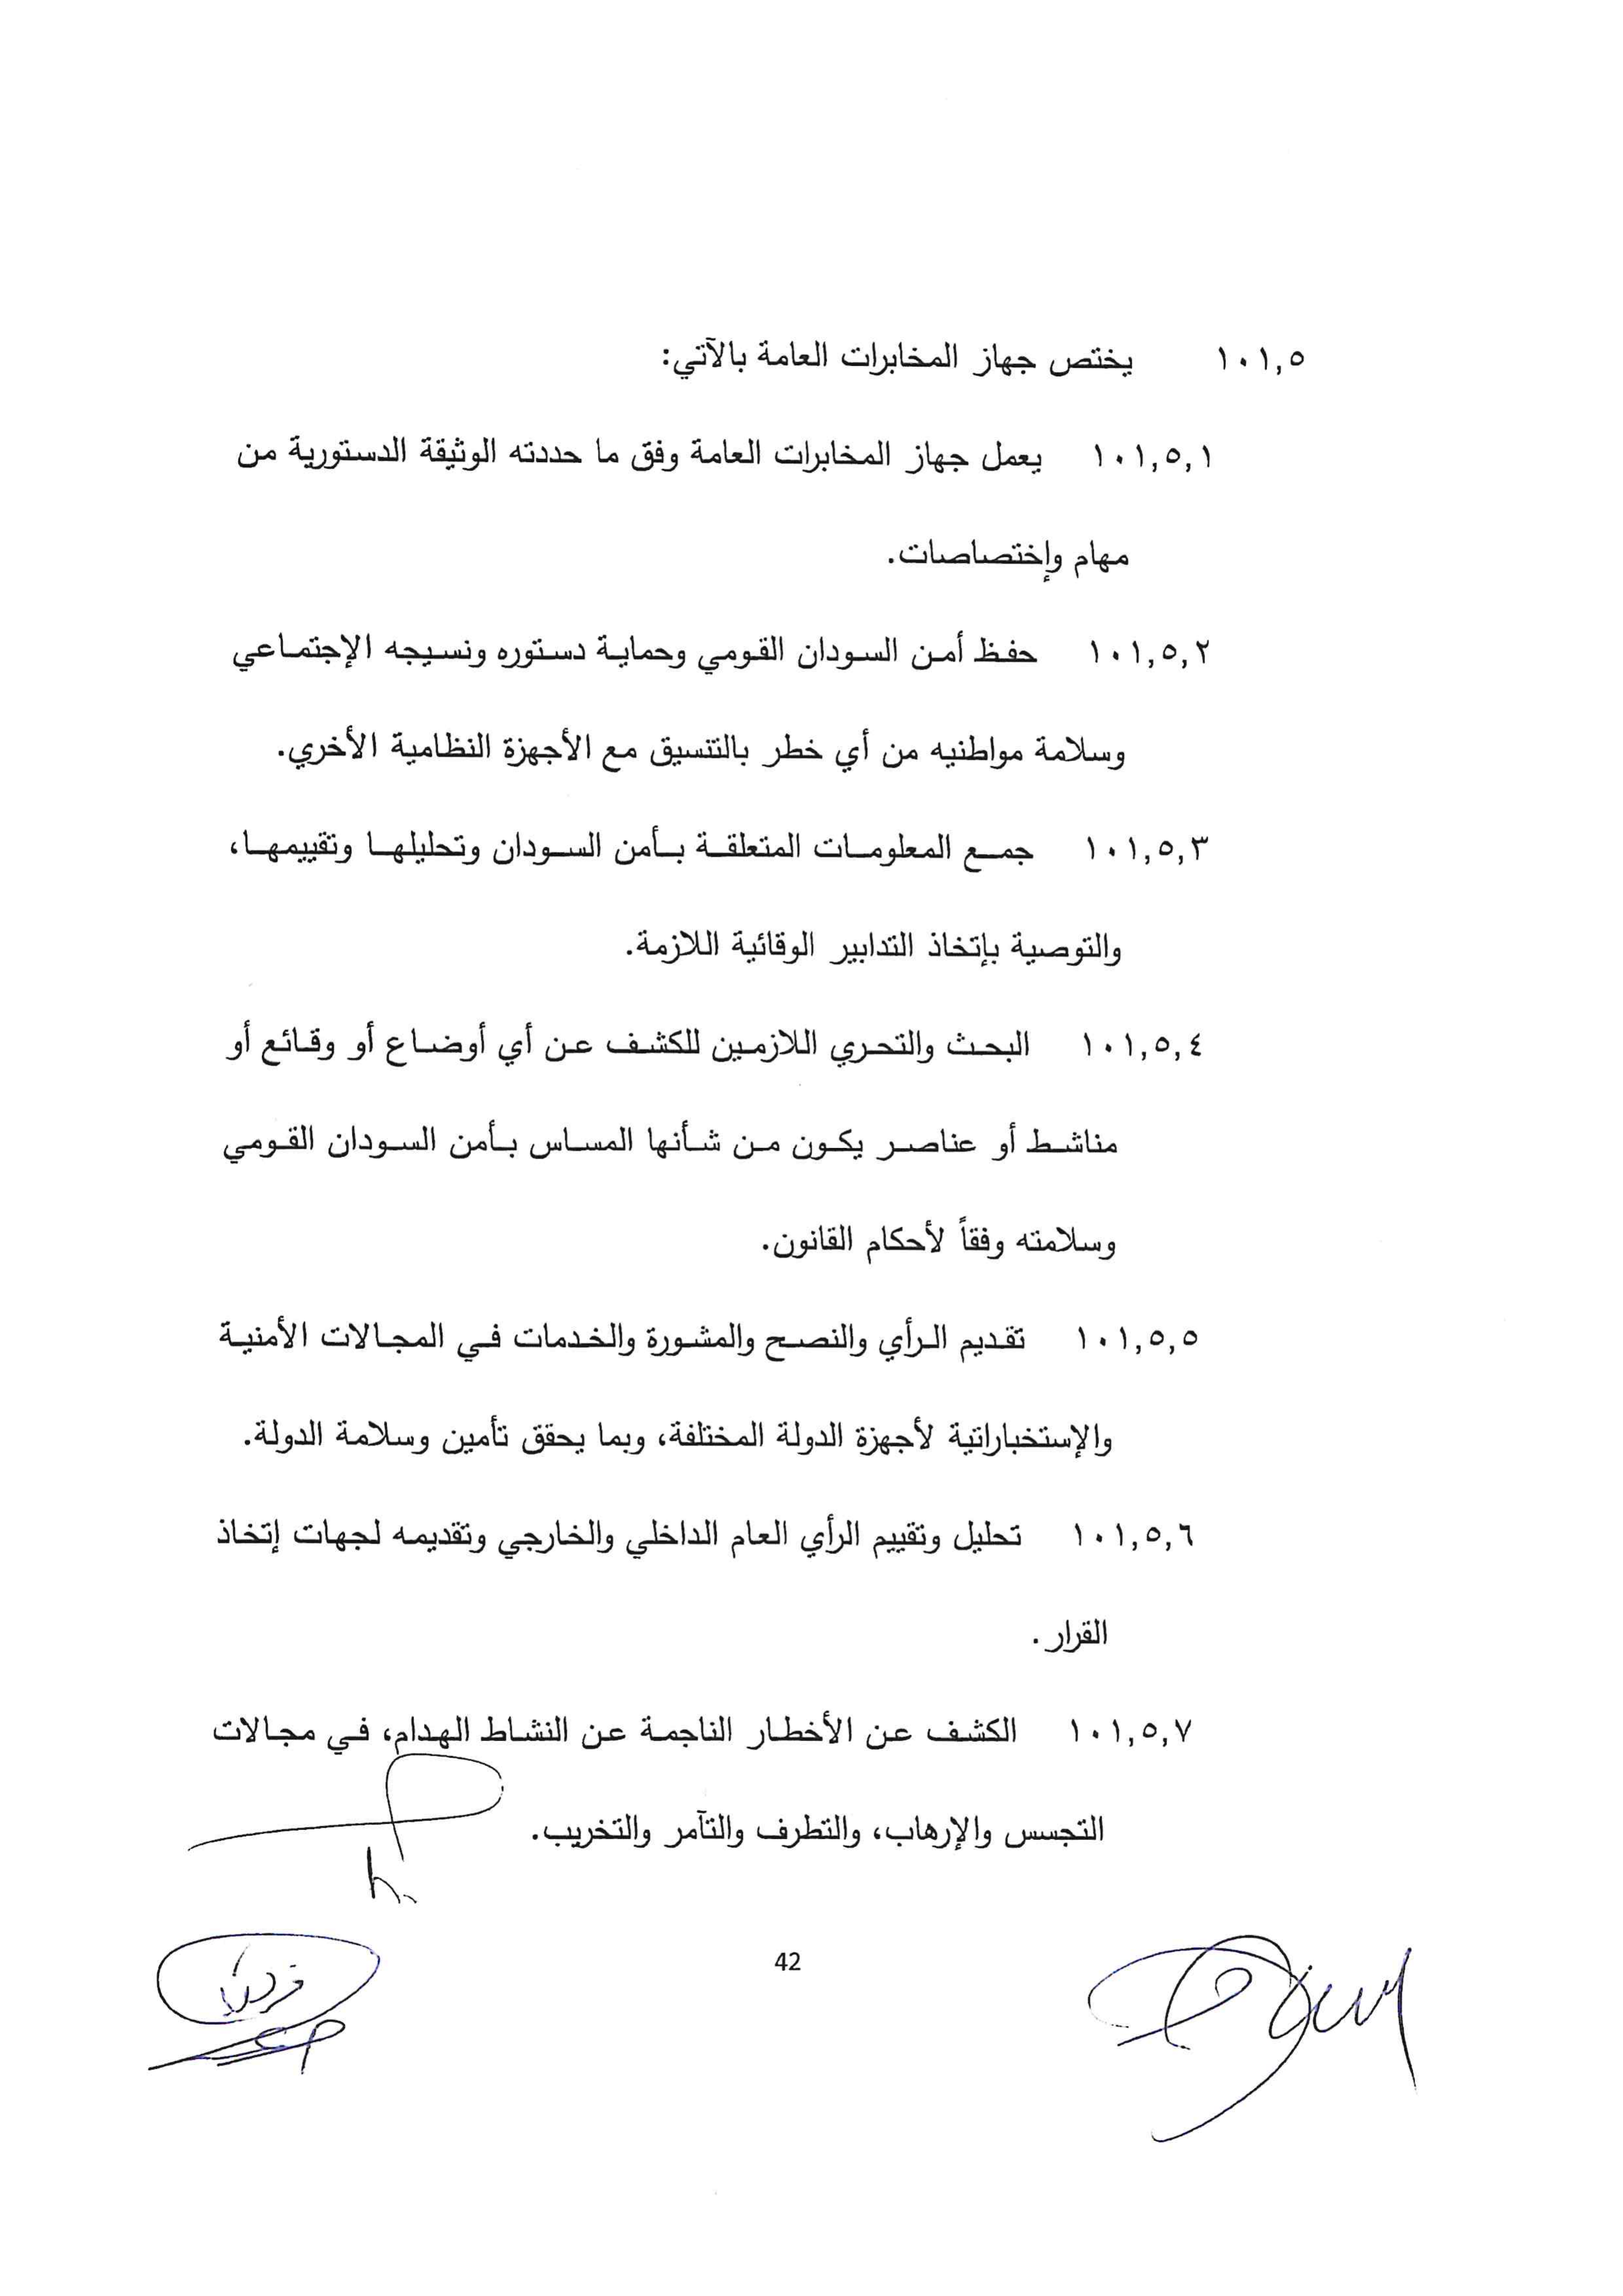 ١٠١,٥ يختص جهاز المخابرات العامة بالآتي:
١٠١,٥,١ يعمل جهاز المخابرات العامة وفق ما حددته الوثيقة الدستورية من
مهام وإختصاصات.
١٠١,٥,٢ حفظ أمن السودان القومي وحماية دستوره ونسيجه الإجتماعي
وسلامة مواطنيه من أي خطر بالتنسيق مع الأجهزة النظامية الأخري.
١٠١,٥,٣ جمع المعلومات المتعلقة بأمن السودان وتحليلها وتقييمها،
والتوصية بإتخاذ التدابير الوقائية اللازمة.
١٠١,٥,٤ البحث والتحري اللازمين للكشف عن أي أوضاع أو وقائع أو
مناشط أو عناصر يكون من شأنها المساس بأمن السودان القومي
وسلامته وفقاً لأحكام القانون.
١٠١,٥,٥ تقديم الرأي والنصح والمشورة والخدمات في المجالات الأمنية
والإستخباراتية لأجهزة الدولة المختلفة، وبما يحقق تأمين وسلامة الدولة.
١٠١,٥,٦ تحليل وتقييم الرأي العام الداخلي والخارجي وتقديمه لجهات إتخاذ
القرار.
١٠١,٥,٧ الكشف عن الأخطار الناجمة عن النشاط الهدام، في مجالات
التجسس والإرهاب، والتطرف والتآمر والتخريب.
42